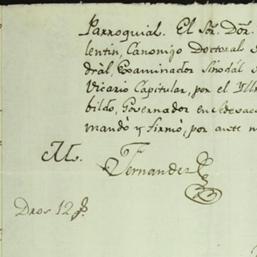 Parroquial. El Sor. Dor.
lentin, Canonigo Doctoral
dràl, Examinador Sinodàl
Vicario Capitular, por el Yll
bildo, Governador en Sedevac
mandó y firmó, por ante
M.
Fernandez
Dros 12